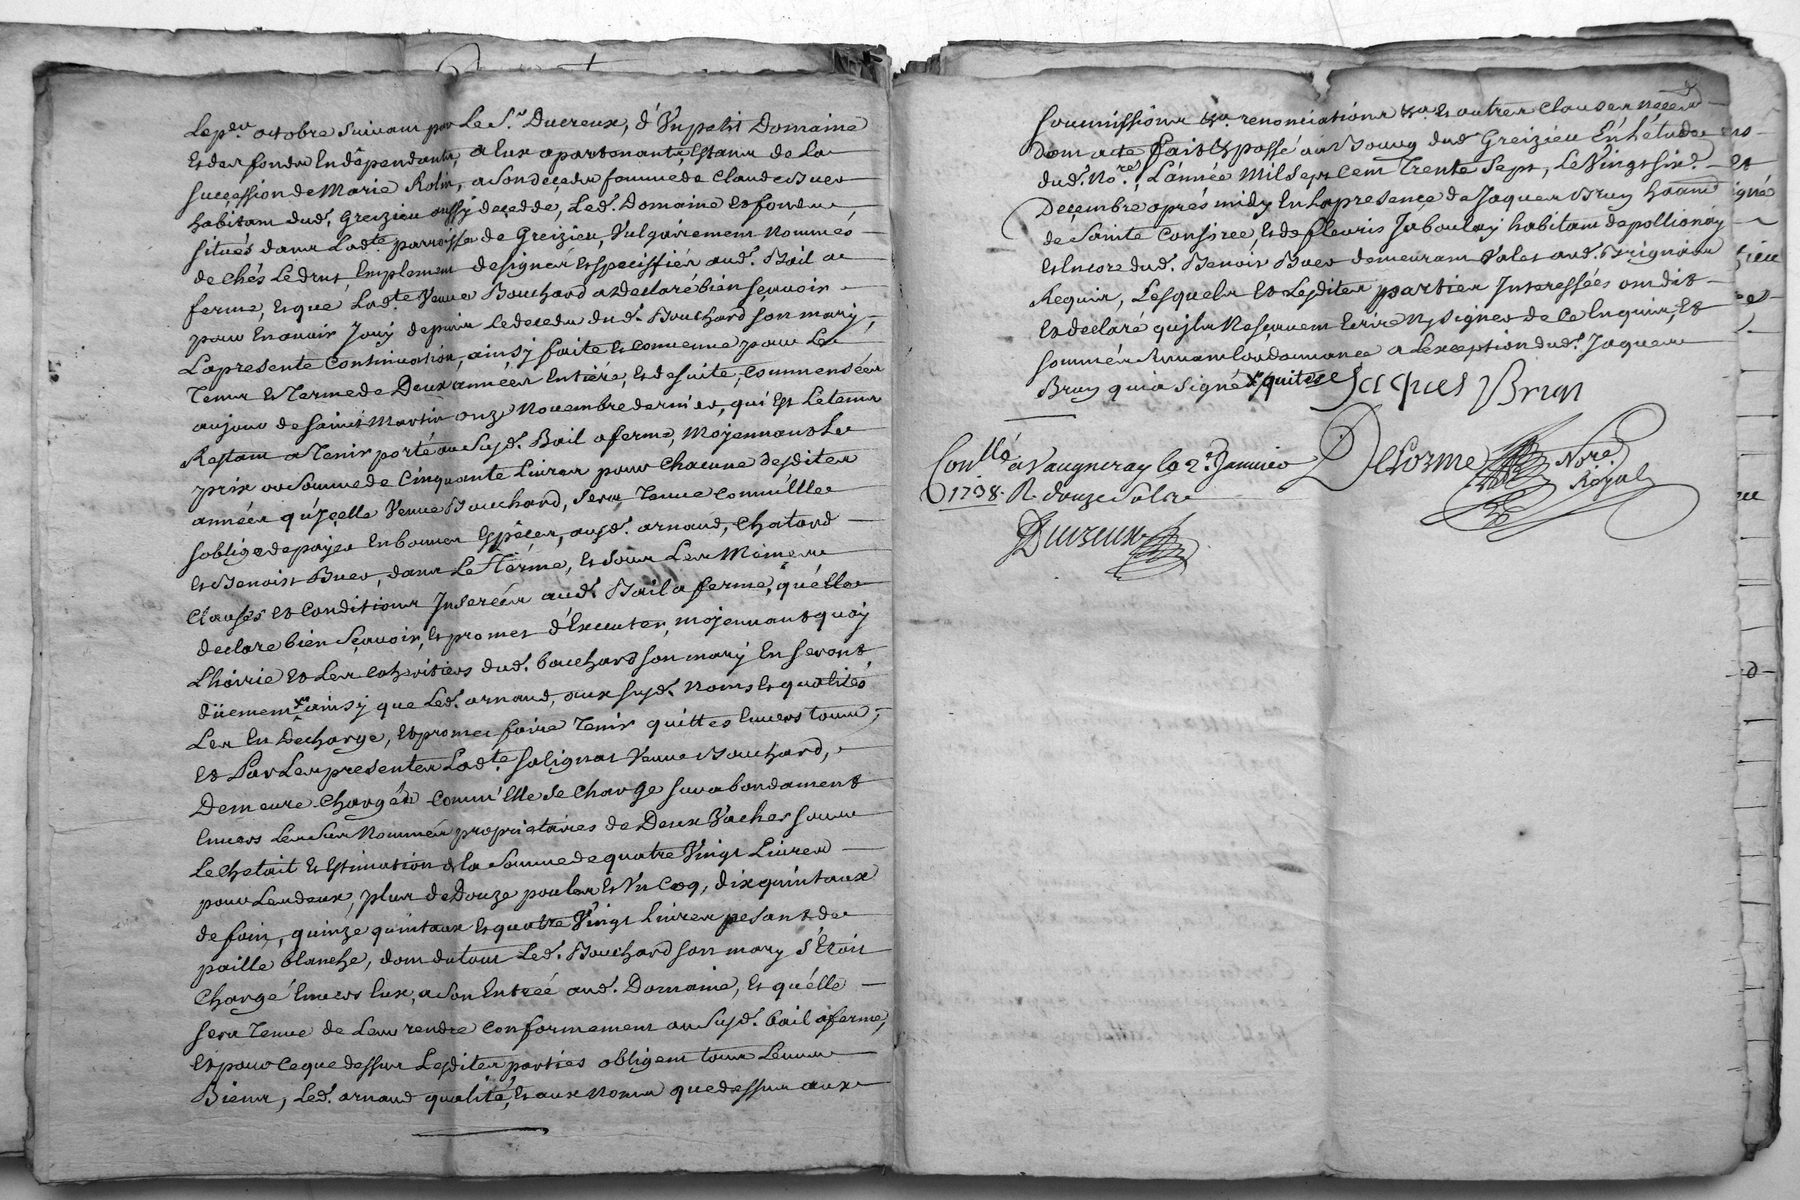 Le per. octobre suivant par Le Sr. Ducreux, d'Un petit Domaine
Et des fonds En dépendants, a Eux apartenants, Estant de La
succession de Marie Rolin, a son deceds femme de Claude Buer
habitant dud. Greizieu aussy decedde, Led. Domaine et fonds
situés dans Ladte. parroisse de Greizieu, Vulgairement nommés
de chés Ledrut, Emplement designés et speciffiés aud. Bail a
ferme, Et que Ladte. Veuve Bouchard a declaré bien sçavoir
pour En avoir Jouy depuis Le deceds dud. Bouchard son mary,
La presente Continuation, ainsy faite et convenue pour Le
Tems et Terme de Deux années Entiére, Et de suite, commensées
au jour de saint Martin onze Novembre dernier, qui Est Le tems
Restant a Tenir porté au susd. Bail a ferme, Moyennant Le
prix et somme de Cinquante Livres pour Chacune desdites
années qu'Jcelle Veuve Bouchard, sera Tenue comm'Elle
s'oblige de payer En bonnes Espéces, ausd. arnaud, Chatard
et Benoist Buer, dans Le Térme, et sous Les Mêmes
Clauses et Conditions Jnserées aud. Bail a ferme, qu'elle
declare bien sçavoir, Et promet d'Executer, moyennant quoy
L'hoirie et Les coheritiers dud. bouchard son mary En seront
düement ainsy que Led. arnaud, aux susd. Noms Et qualités
Les En Decharge, et promet faire Tenir quittes Envers tous,
et Par Les presentes Ladte. solignat Veuve Bouchard,
Demeure chargée comm'Elle se charge surabondament
Envers Les sus Nommés proprietaires de Deux Vaches sous
Le chetait Et Estimation de la somme de quatre Vingt Livres
pour Les deux, plus de Douze poules Et Un Coq, dix quintaux
de foin, quinze quintaux Et quatre Vingt Livres pesant de
paille blanche, dont du tout Led. Bouchard son mary s'Etoit
Chargé Envers Eux, a son Entrée aud. Domaine, Et qu'elle
sera Tenue de Leur rendre conformement au susd. bail a ferme,
Et pour ce que dessus Lesdites parties obligent tous Leurs
Biens, Led. arnaud qualité, Et aux Noms que dessus aux
soumissions &a. renonciations &a. Et autres clauses
Dont acte fait et passé au Bourg dud. Greizieu En l'étude
dud. Nore., L'année Mil Sept Cent Trente Sept, Le Vingt six
Decembre aprés midy En La presence de Jaques Brun
de Sainte Consorce, Et de fleuris Jaboulay habitant de pollionay
Et Encore dud. Benoist Buer demeurant Valet aud. Brignais
Requis, Lesquels et Lesdites parties Interessées ont dit
et declaré qu'ils Ne sçavent Ecrire Ny signer de ce Enquis, et
sommés suivant Lordonnance a Lexception dud. Jaques
Brun qui a signé quittes Jacques Brun
Conllé. a Vaugneray le 2e. Janvier
1738. R. douze sols
Delorme Nore.
Royal
Ducreux